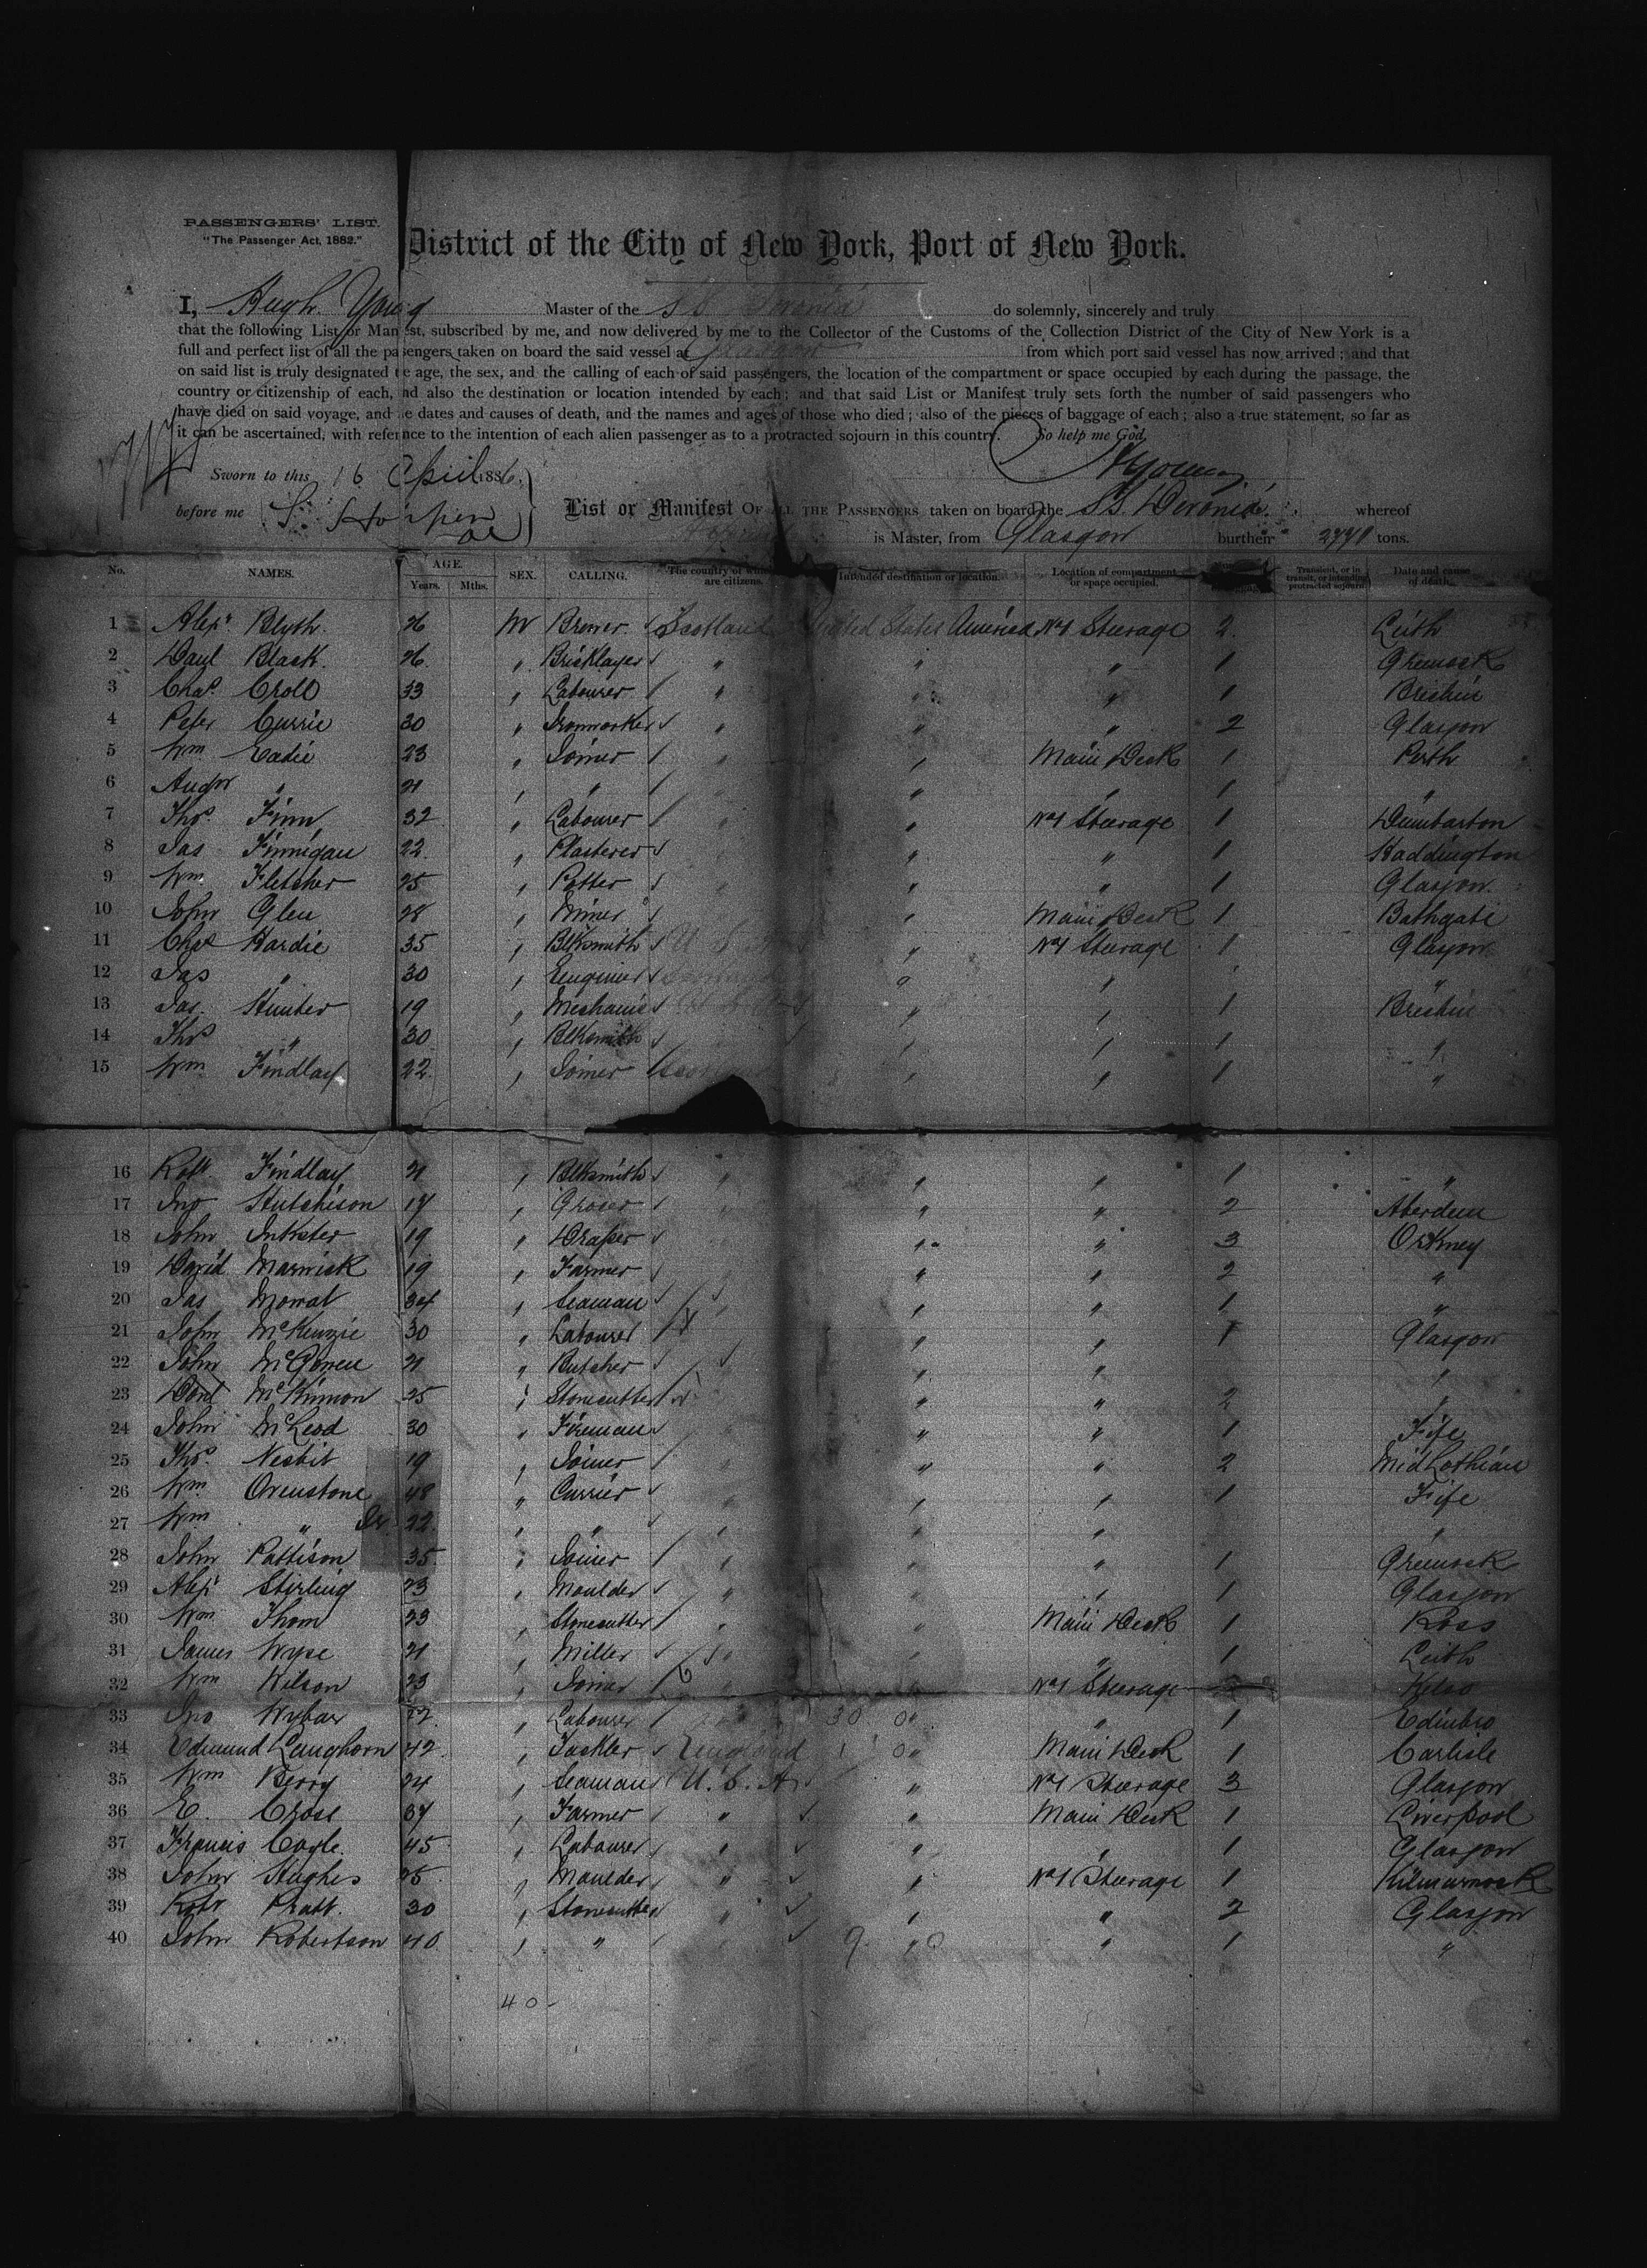 PASSENGERS' LIST.
"The Passenger Act, 1882."
District of the City of New York, Port of New York.
I, Hugh Young Master of the S.S. Devonia do solemnly, sincerely and truly
that the following List or Manifest, subscribed by me, and now delivered by me to the Collector of the Customs of the Collection District of the City of New York is a
full and perfect list of all the passengers taken on board the said vessel at Glasgow from which port said vessel has now arrived; and that
on said list is truly designated the age, the sex, and the calling of each of said passengers, the location of the compartment or space occupied by each during the passage, the
country or citizenship of each, and also the destination or location intended by each; and that said List or Manifest truly sets forth the number of said passengers who
have died on said voyage, and the dates and causes of death, and the names and ages of those who died; also of the pieces of baggage of each; also a true statement, so far as
it can be ascertained, with reference to the intention of each alien passenger as to a protracted sojourn in this country. So help me God,
Sworn to this 16 April 1886, HYoung
before me
List or Manifest OF ALL THE PASSENGERS taken on board the S.S. Devonia whereof
is Master, from Glasgow burthen tons.
No. NAMES. AGE. Years. Mths. SEX. CALLING. The country of which are citizens. Intended destination or location. Location of compartment or space occupied. Transient, or in transit, or intending protracted sojourn. Date and cause of death.
1 Alexr Blyth. 26 M Brewer Scotland United States America No1 Steerage 2 Leith
2 Paul Black. 26 " Bricklayer " " " 1 Greenock
3 Chas Croll 33 " Labourer " " " 1 Brechin
4 Peter Currie 30 " Ironworker " " " 2 Glasgow
5 Wm Eadie 23 " Joiner " " Main Deck 1 Perth
6 Andw " 21 " " " " " 1 "
7 Thos Finn 32 " Labourer " " No1 Steerage 1 Dumbarton
8 Jas Finnigan 22 " Plasterer " " " 1 Haddington
9 Wm Fletcher 25 " Potter " " " 1 Glasgow
10 John Glen 28 " Miner " " Main Deck 1 Bathgate
11 Chas Hardie 35 " Blksmith U.S. " No1 Steerage 1 Glasgow
12 Jas " 30 " Engineer " " "
13 Jas Hunter 19 " Mechanic " " 1 Brechin
14 Thos " 30 " Blksmith " " 1 "
15 Wm Findlay 22 " Joiner " " 1 "
16 Robt Findlay 21 " Blksmith " " " 1 "
17 Jno Hutchison 17 " Grocer " " " 2 Aberdeen
18 John Inkster 19 " Draper " " 3 Orkney
19 David Marwick 19 " Farmer " " 2 "
20 Jas Mowat 34 " Seaman " " " 1 "
21 John McKenzie 30 " Labourer " " 1 Glasgow
22 John McGowen 21 " Butcher " " "
23 Dond McKinnon 25 " Stonecutter " " 2 "
24 John McLeod 30 " Fireman " " 1 Fife
25 Thos Nesbit 19 " Joiner " " 2 MidLothian
26 Wm Ovenstone 48 " Currier " " " 1 Fife
27 Wm " Jr 22 " " " " " "
28 John Pattison 35 " Joiner " " " 1 Greenock
29 Alexr Stirling 23 " Moulder " " " 1 Glasgow
30 Wm Thom 23 " Stonecutter " " Main Deck 1 Ross
31 James Wyse 21 " Miller " " " 1 Leith
32 Wm Wilson 23 " Joiner " No1 Steerage Kelso
33 Jno Wybar 22 " Labourer 30 0 " " 1 Edinbro
34 Edmund Langhorn 42 " Tackler England 1 0 " Main Deck 1 Carlisle
35 Wm Berry 24 " Seaman U.S.A " No1 Steerage 3 Glasgow
36 E. Cross 37 " Farmer " " Main Deck 1 Liverpool
37 Francis Cogle 45 " Labourer " " " 1 Glasgow
38 John Hughes 25 " Moulder " " No1 Steerage 1 Kilmarnock
39 Robt Pratt. 30 " Stonecutter " " " 2 Glasgow
40 John Robertson 40 " " 9 " 0 " 1 "
40